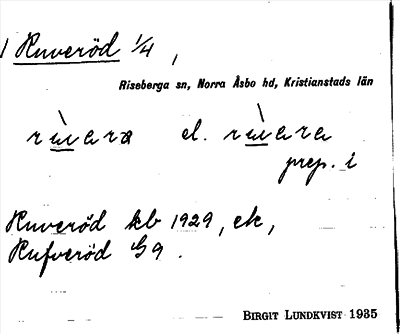 1 Ruveröd 1/4,
Riseberga sn, Norra Åsbo hd, Kristianstads län
rùvərə el. rùvərə
prep. i
Ruveröd kb 1929, ek,
Rufveröd G9.
BIRGIT LUNDKVIST 1935